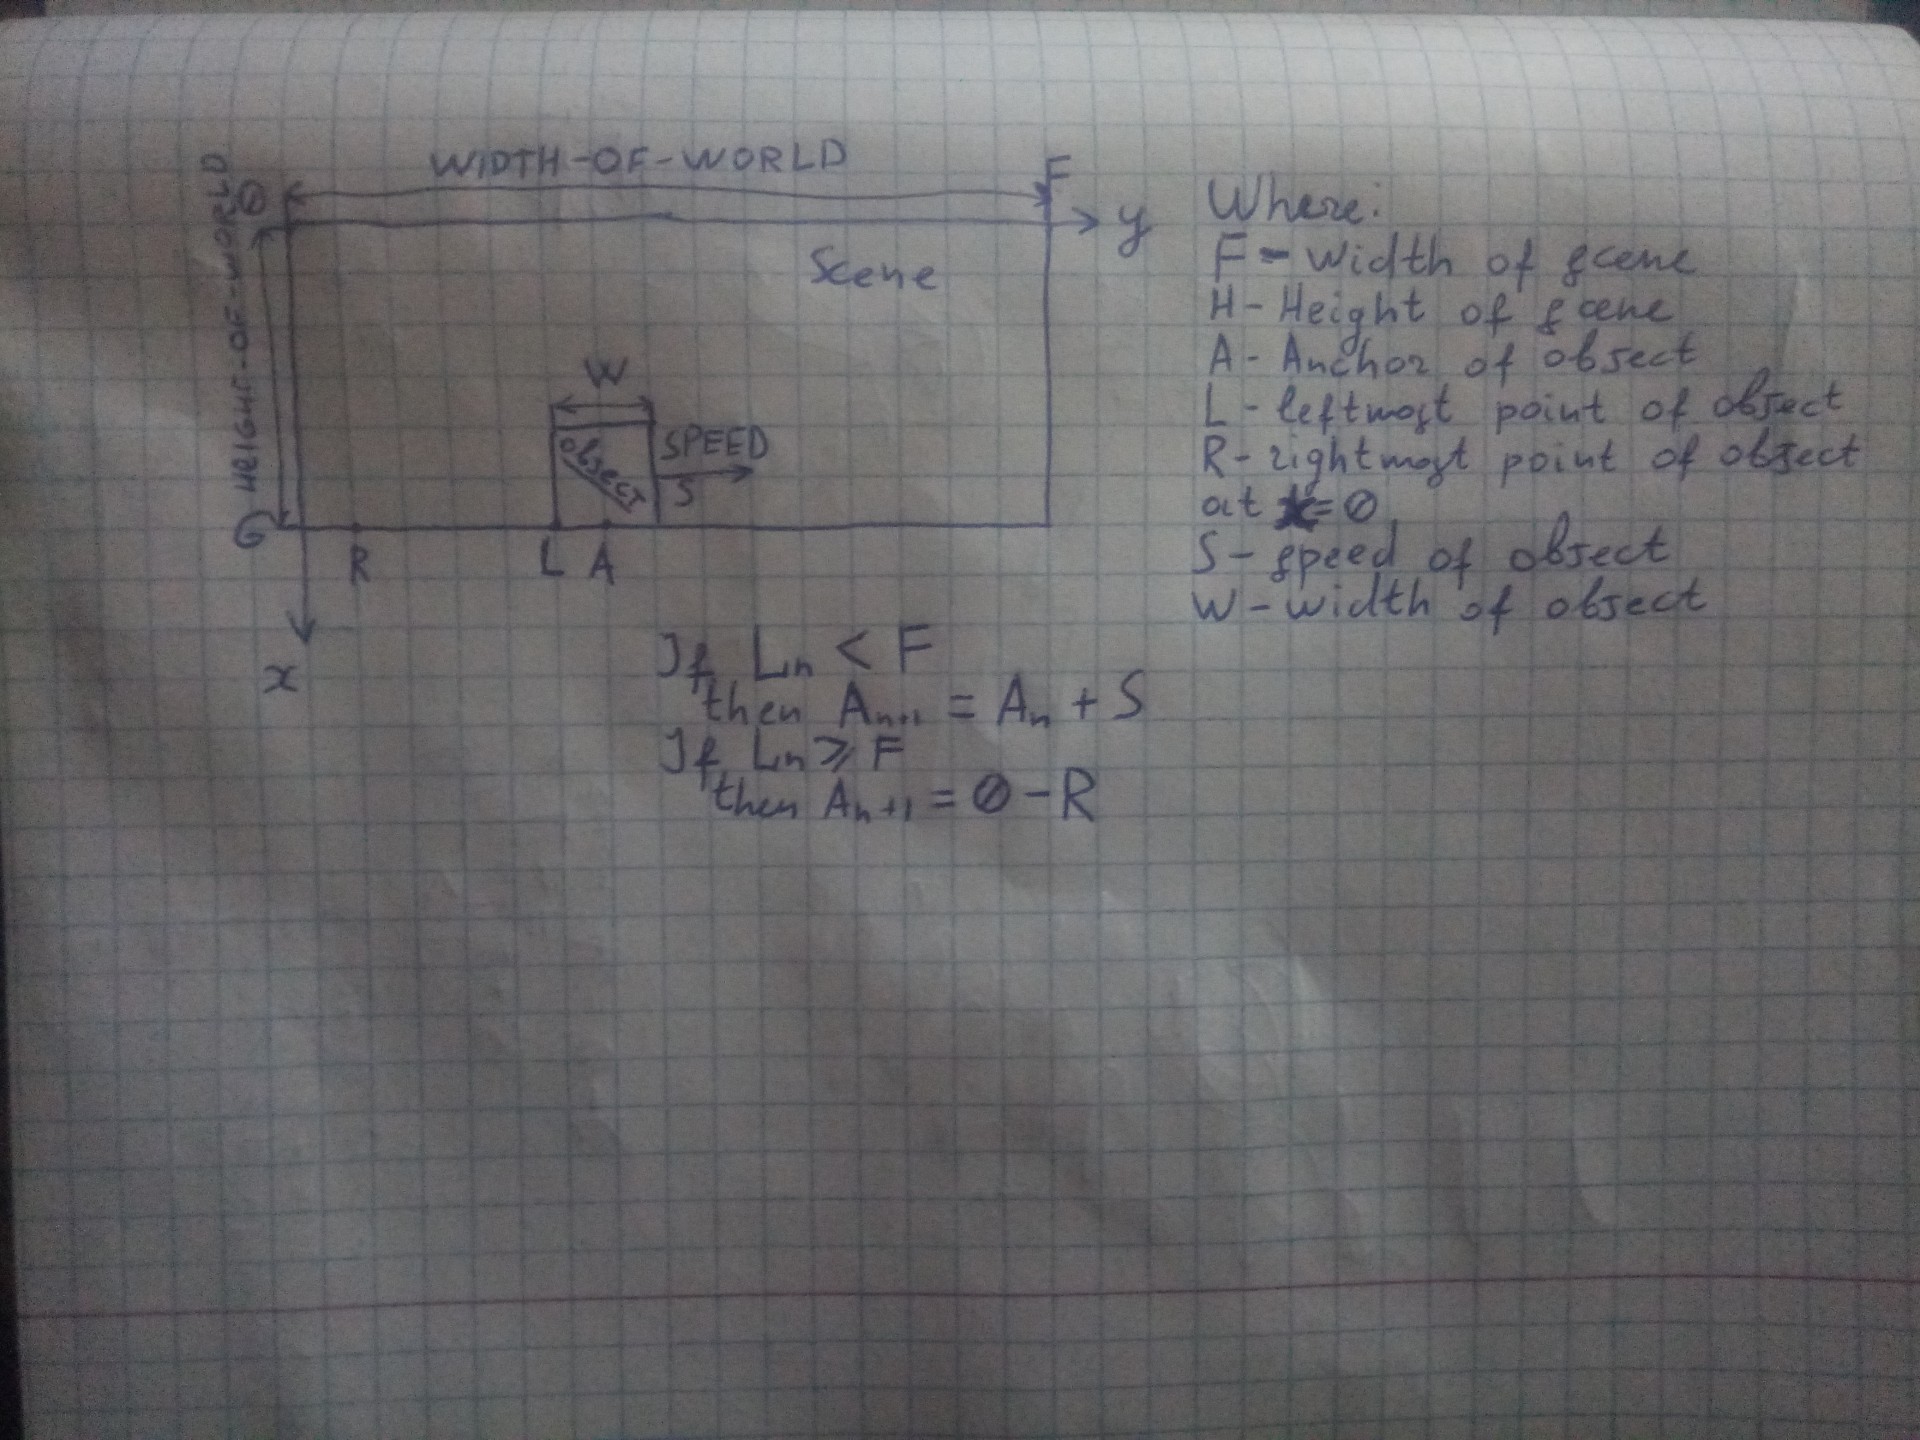 WIDTH-OF-WORLD
F
0
y
HEIGHT-OF-WORLD
Scene
W
object
SPEED
S
G
R
L
A
x
Where:
F - width of scene
H - Height of scene
A - Anchor of object
L - leftmost point of object
R - rightmost point of object
at x=0
S - speed of object
W - width of object
If Ln < F
then An+1 = An + S
If Ln ⩾ F
then An+1 = 0 - R